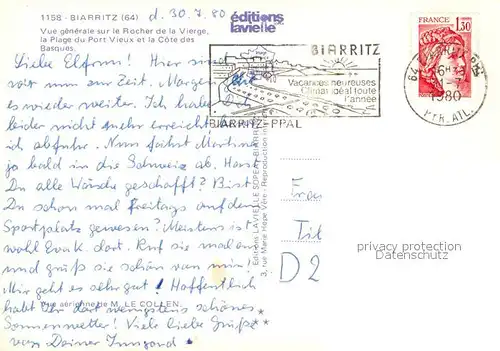 1158 - BIARRITZ (64) d. 30.7.80
éditions lavielle
Vue générale sur le Rocher de la Vierge,
la Plage du Port Vieux et la Côte des
Basques.
Liebe Elfrun! Hier sind
wir nun zur Zeit. Morgen
es wieder weiter. Ich habe Dich
leider nicht mehr erreicht
ich abfuhr. Nun fährt Martina
ja bald in die Schweiz ab. Hast
Du alle Wände geschafft? Bist
Du schon mal freitags auf dem
Sportplatz gewesen? Meistens ist
wohl Evak dort. Ruf sie mal an
und grüß sie schön von mir!
Mir geht es sehr gut! Hoffentlich
Vue aérienne de M. LE COLLEN.
habt Ihr dort wenigstens schönes
Sonnenwetter! Viele liebe Grüße
von Deiner Irmgard
BIARRITZ
Vacances heureuses
Climat idéal toute
l'année
BIARRITZ-PPAL
FRANCE
1,30
1980
PYR. ATL.
Editions LAVIELLE
3, rue Marie Hope Vère - Reproduction
Frau
D 2
privacy protection
Datenschutz